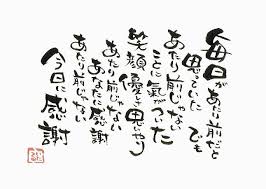 毎日が あたり前だと
思っていた でも
あたり前じゃない
ことに気がついた
笑顔 優しさ 思いやり
あたり前じゃない
あなたに感謝
あたり前じゃない
今日に 感謝